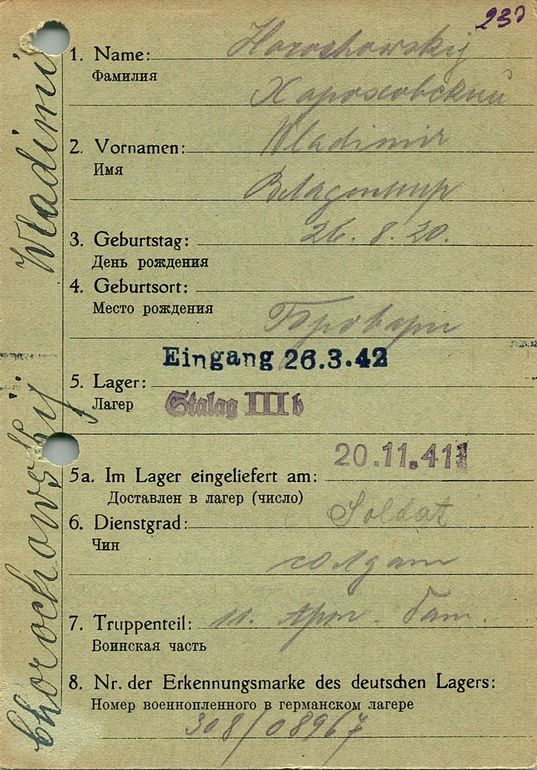 230
1. Name: Horochowskij
Фамилия
Хароховский
2. Vornamen: Wladimir
Имя
Владимир
3. Geburtstag: 26. 8. 20.
День рождения
4. Geburtsort:
Место рождения
Бровары
Eingang 26.3.42
5. Lager:
Лагерь
Stalag III b
20.11.41
5a. Im Lager eingeliefert am:
Доставлен в лагерь (число)
6. Dienstgrad: Soldat
Чин
солдат
7. Truppenteil: 11. арт. бат.
Воинская часть
8. Nr. der Erkennungsmarke des deutschen Lagers:
Номер военнопленного в германском лагере
308/08967
Chorochowskij Wladimir